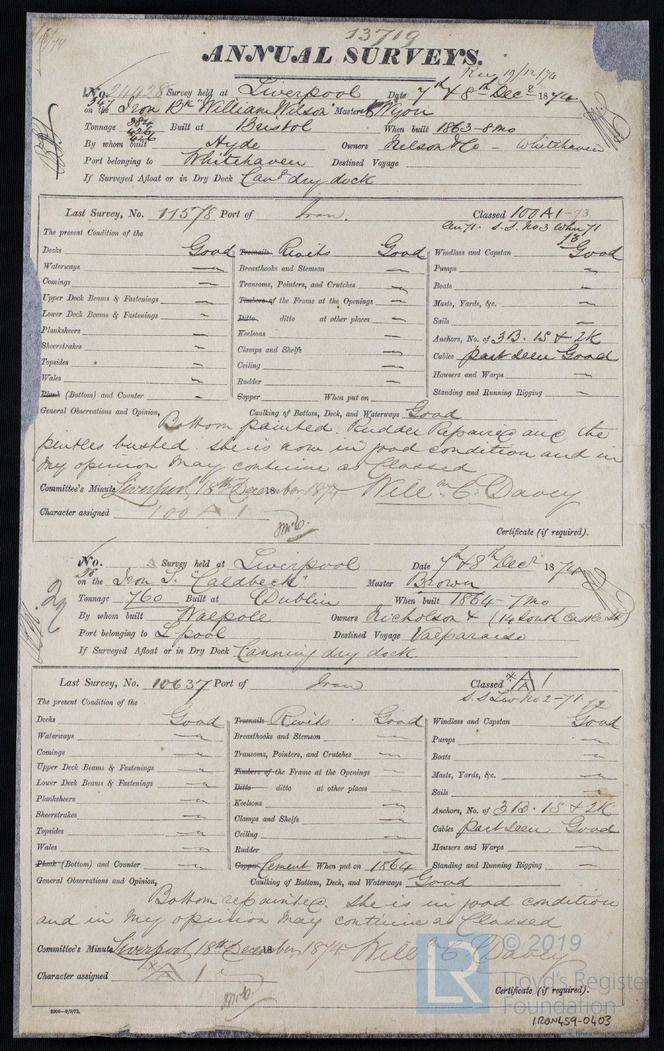 13719
ANNUAL SURVEYS.
Rec 19/12/74
No. 24428 Survey held at Liverpool Date 7th & 8th Decr 1874
on the Iron Bk "William Wilson" Master
Tonnage 384 426 Built at Bristol When built 1863 - 8 mo
By whom built Hyde Owners Nelson & Co - Whitehaven
Port belonging to Whitehaven Destined Voyage
If Surveyed Afloat or in Dry Dock Cang dry dock
Last Survey, No. 11578 Port of Iron Classed 100 A1 - 73
S.S. No 3 Whn 71
The present Condition of the
Decks Good Treenails Rivits Good Windlass and Capstan Good
Waterways Breasthooks and Stemson Pumps
Comings Transoms, Pointers, and Crutches Boats
Upper Deck Beams & Fastenings Timbers of the Frame at the Openings Masts, Yards, &c.
Lower Deck Beams & Fastenings Ditto ditto at other places Sails
Planksheers Keelsons Anchors, No. of 3B. 1S & 2K
Sheerstrakes Clamps and Shelfs Cables part seen Good
Topsides Ceiling Hawsers and Warps
Wales Rudder Standing and Running Rigging
Plank (Bottom) and Counter Copper When put on
General Observations and Opinion, Caulking of Bottom, Deck, and Waterways Good
Bottom painted. Rudder Repaired and the
pintles bushed. She is now in good condition and in
my opinion may continue as Classed
Committee's Minute Liverpool, 18th December 1874 Willm C. Davey
Character assigned 100 A 1
Certificate (if required).
No. Survey held at Liverpool Date 7th & 8th Decr 1874
on the Iron S. "Caldbeck" Master Brown
Tonnage 760 Built at Dublin When built 1864 - 7 mo
By whom built Walpole Owners Nicholson & (14 South Castle St)
Port belonging to L'pool Destined Voyage Valparaiso
If Surveyed Afloat or in Dry Dock Canning dry dock
Last Survey, No. 10637 Port of Iron Classed A 1
S.S Liv No 2 - 71. 72
The present Condition of the
Decks Good Treenails Rivits Good Windlass and Capstan Good
Waterways Breasthooks and Stemson Pumps
Comings Transoms, Pointers, and Crutches Boats
Upper Deck Beams & Fastenings Timbers of the Frame at the Openings Masts, Yards, &c.
Lower Deck Beams & Fastenings Ditto ditto at other places Sails
Planksheers Keelsons Anchors, No. of 3B. 1S & 2K
Sheerstrakes Clamps and Shelfs Cables part seen Good
Topsides Ceiling Hawsers and Warps
Wales Rudder Standing and Running Rigging
Plank (Bottom) and Counter Copper Cement When put on 1864
General Observations and Opinion, Caulking of Bottom, Deck, and Waterways Good
Bottom repainted. She is in good condition
and in my opinion may continue as Classed
Committee's Minute Liverpool, 18th December, 1874 Willm C. Davey
Character assigned A 1
Certificate (if required).
LR © 2019
Lloyd's Register
Foundation
IRON459-0403